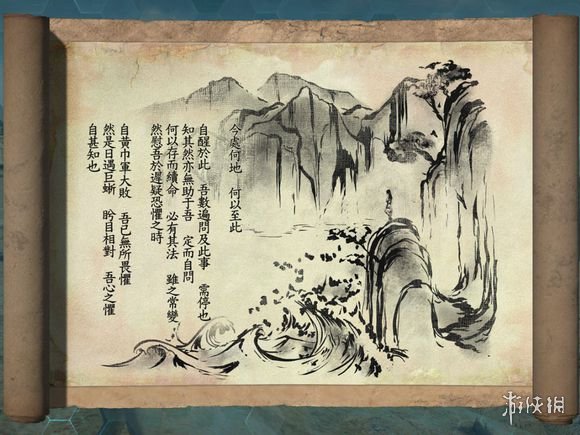 今處何地　何以至此
自醒於此　吾數遍問及此事　需停也
知其然亦無助于吾　定而自問
何以存而續命　必有其法　雖之常變
然慰吾於遲疑恐懼之時
自黃巾軍大敗　吾已無所畏懼
然是日遇巨蜥　盻目相對　吾心之懼
自甚知也
游侠網